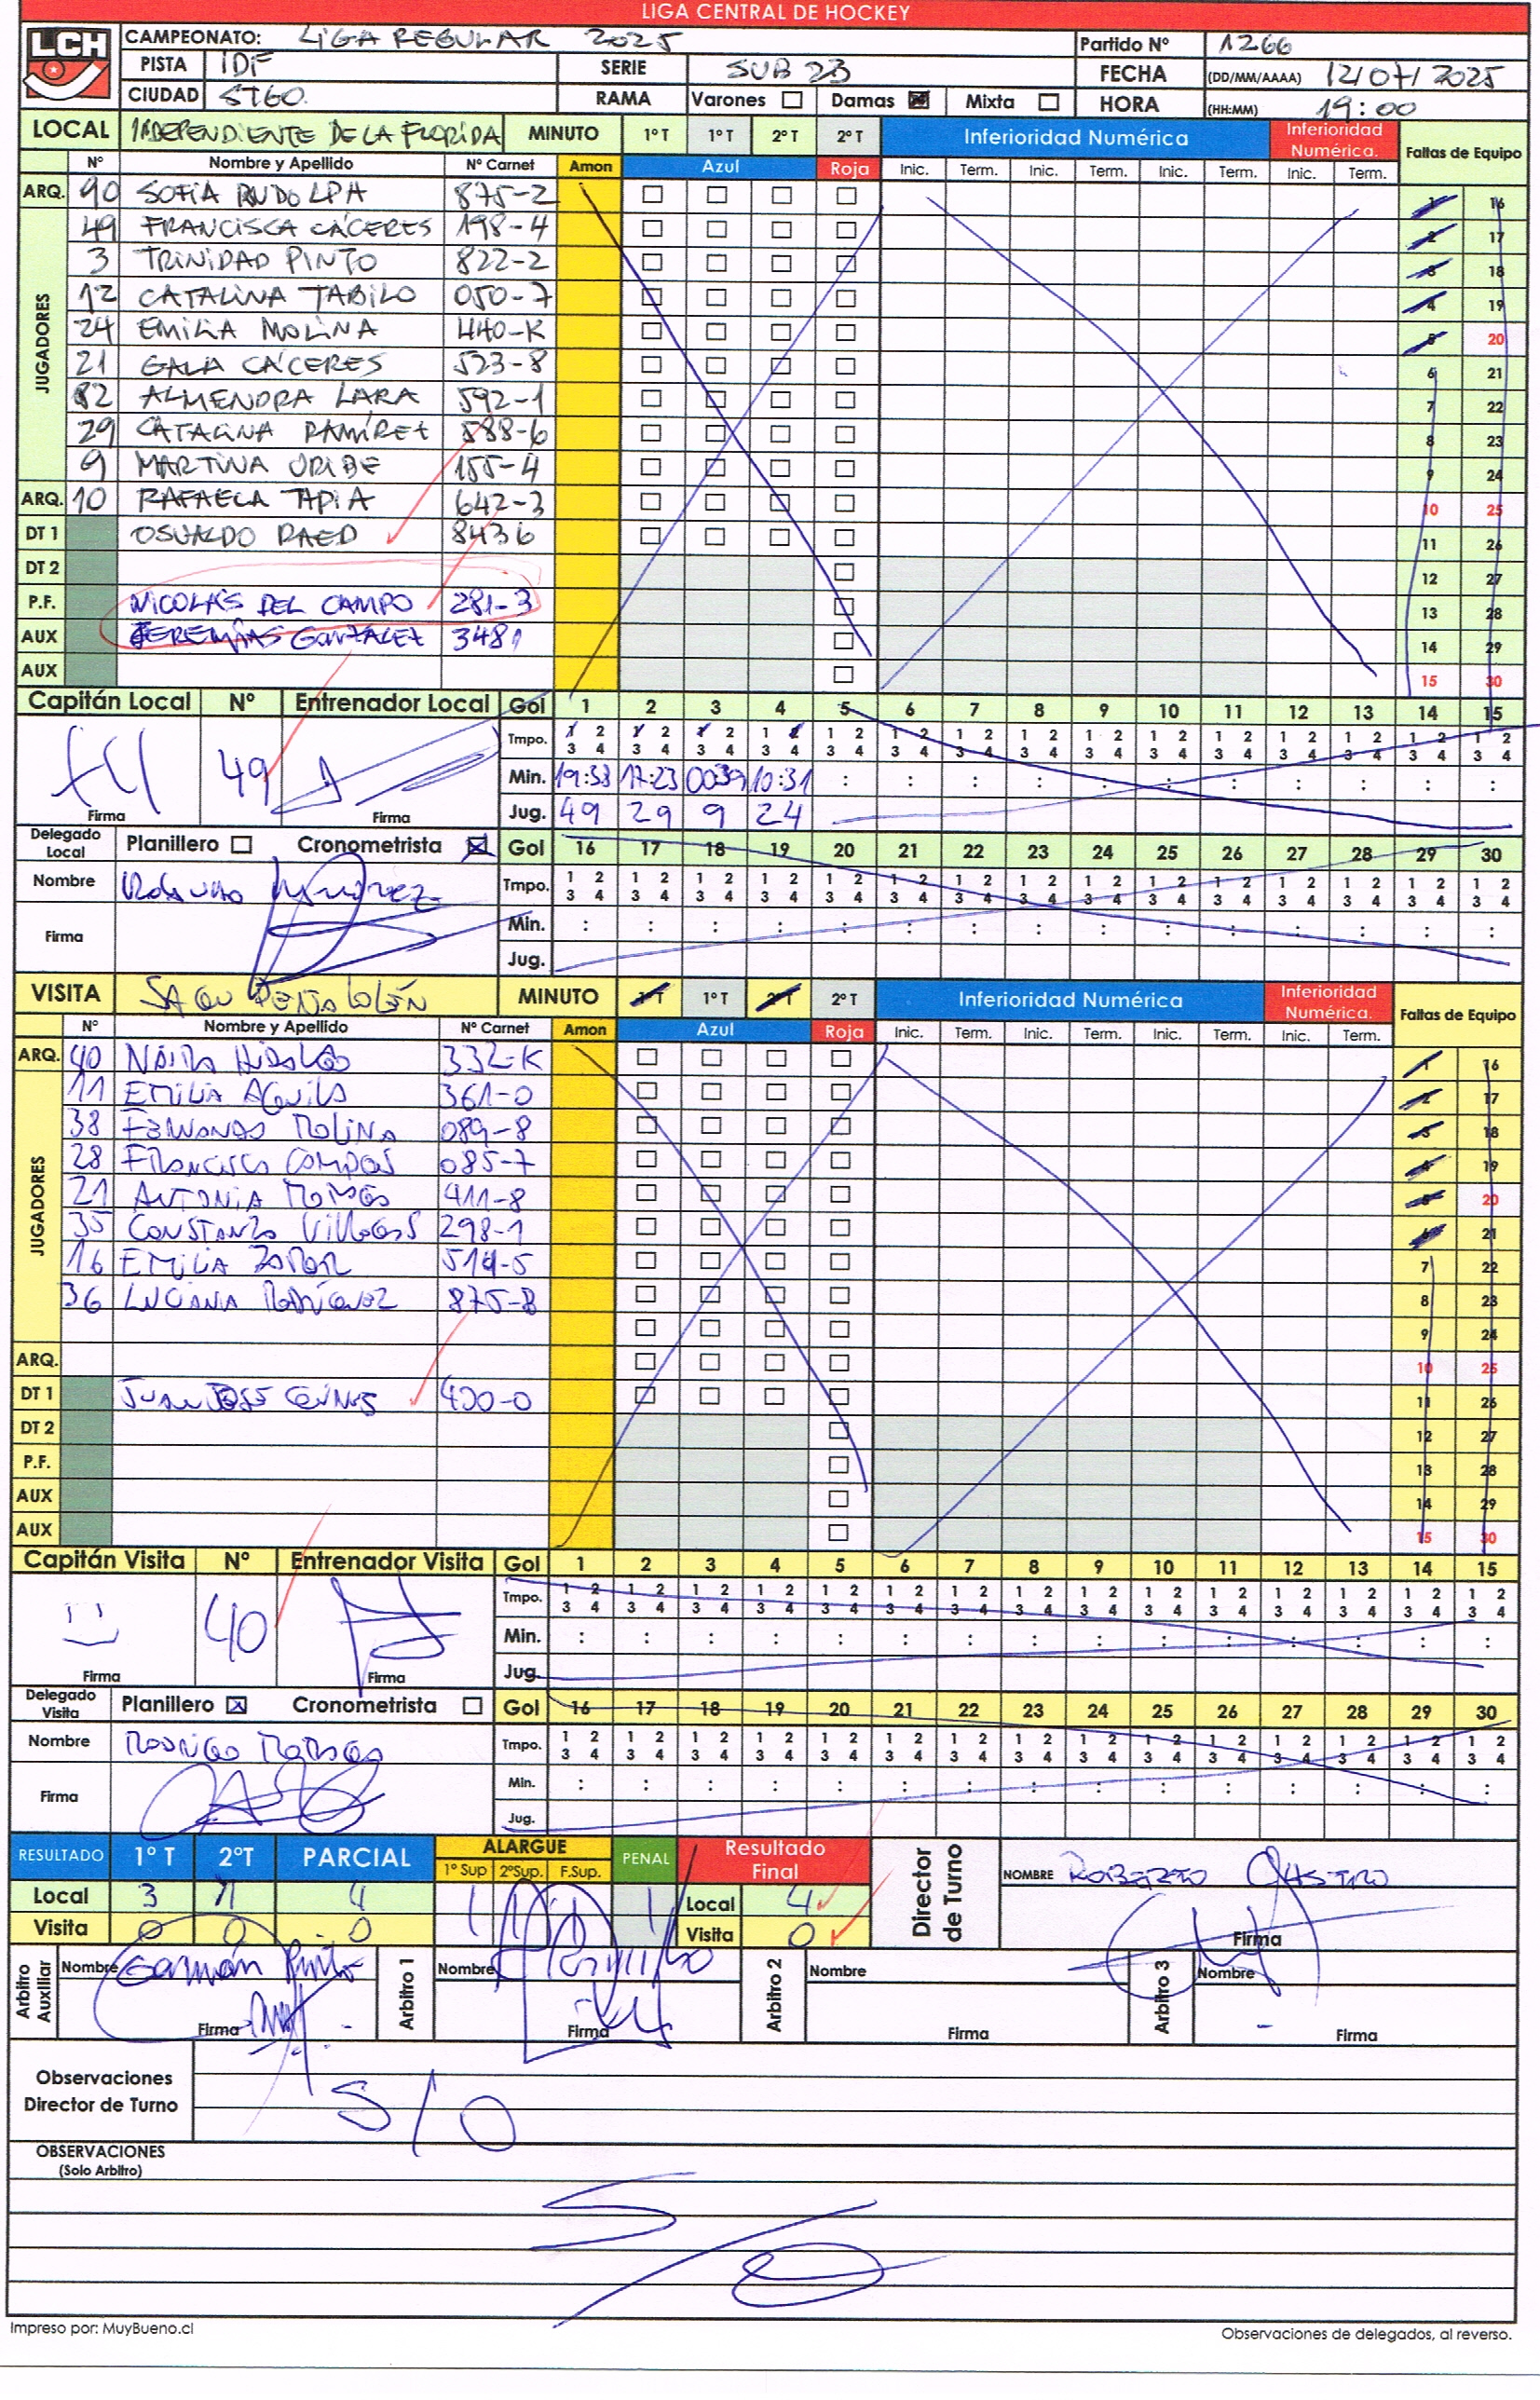 LIGA CENTRAL DE HOCKEY
LCH
CAMPEONATO: LIGA REGULAR 2025 Partido Nº 1266
PISTA IDF SERIE SUB 23 FECHA (DD/MM/AAAA) 12/07/2025
CIUDAD STGO. RAMA Varones Damas Mixta HORA (HH:MM) 19:00
LOCAL INDEPENDIENTE DE LA FLORIDA MINUTO 1º T 1º T 2º T 2º T Inferioridad Numérica Inferioridad Numérica. Faltas de Equipo
Nº Nombre y Apellido Nº Carnet Amon Azul Roja Inic. Term. Inic. Term. Inic. Term. Inic. Term.
ARQ. 90 SOFIA RUDOLPH 875-2 1 16
JUGADORES
49 FRANCISCA CÁCERES 198-4 2 17
3 TRINIDAD PINTO 822-2 3 18
12 CATALINA TABILO 050-7 4 19
24 EMILIA MOLINA 440-K 5 20
21 GALA CÁCERES 523-8 6 21
82 ALMENDRA LARA 592-1 7 22
29 CATALINA RAMÍREZ 588-6 8 23
9 MARTINA URIBE 155-4 9 24
ARQ. 10 RAFAELA TAPIA 642-3 10 25
DT 1 OSVALDO RAED 8436 11 26
DT 2 12 27
P.F. NICOLÁS DEL CAMPO 281-3 13 28
AUX JEREMÍAS GONZALEZ 3481 14 29
AUX 15 30
Capitán Local Nº Entrenador Local Gol 1 2 3 4 5 6 7 8 9 10 11 12 13 14 15
Tmpo. 1 2 3 4 1 2 3 4 1 2 3 4 1 2 3 4 1 2 3 4 1 2 3 4 1 2 3 4 1 2 3 4 1 2 3 4 1 2 3 4 1 2 3 4 1 2 3 4 1 2 3 4 1 2 3 4 1 2 3 4
49 Min. 19:33 17:23 00:39 10:31 : : : : : : : : : : :
Firma Firma Jug. 49 29 9 24
Delegado Local Planillero Cronometrista Gol 16 17 18 19 20 21 22 23 24 25 26 27 28 29 30
Nombre Tmpo. 1 2 3 4 1 2 3 4 1 2 3 4 1 2 3 4 1 2 3 4 1 2 3 4 1 2 3 4 1 2 3 4 1 2 3 4 1 2 3 4 1 2 3 4 1 2 3 4 1 2 3 4 1 2 3 4 1 2 3 4
Firma Min. : : : : : : : : : : : : : : :
Jug.
VISITA MINUTO 1º T 1º T 2º T 2º T Inferioridad Numérica Inferioridad Numérica. Faltas de Equipo
Nº Nombre y Apellido Nº Carnet Amon Azul Roja Inic. Term. Inic. Term. Inic. Term. Inic. Term.
ARQ. 40 332-K 1 16
JUGADORES
11 EMILIA AGUILA 361-0 2 17
38 FERNANDA MOLINA 089-8 3 18
28 FRANCISCA CAMPOS 085-7 4 19
21 ANTONIA 411-8 5 20
35 CONSTANZA VILLEGAS 298-1 6 21
16 EMILIA 514-5 7 22
36 LUCIANA RODRÍGUEZ 875-8 8 23
9 24
ARQ. 10 25
DT 1 JUAN JOSE 400-0 11 26
DT 2 12 27
P.F. 13 28
AUX 14 29
AUX 15 30
Capitán Visita Nº Entrenador Visita Gol 1 2 3 4 5 6 7 8 9 10 11 12 13 14 15
Tmpo. 1 2 3 4 1 2 3 4 1 2 3 4 1 2 3 4 1 2 3 4 1 2 3 4 1 2 3 4 1 2 3 4 1 2 3 4 1 2 3 4 1 2 3 4 1 2 3 4 1 2 3 4 1 2 3 4 1 2 3 4
40 Min. : : : : : : : : : : : : : : :
Firma Firma Jug.
Delegado Visita Planillero Cronometrista Gol 16 17 18 19 20 21 22 23 24 25 26 27 28 29 30
Nombre RODRIGO Tmpo. 1 2 3 4 1 2 3 4 1 2 3 4 1 2 3 4 1 2 3 4 1 2 3 4 1 2 3 4 1 2 3 4 1 2 3 4 1 2 3 4 1 2 3 4 1 2 3 4 1 2 3 4 1 2 3 4 1 2 3 4
Firma Min. : : : : : : : : : : : : : : :
Jug.
RESULTADO 1º T 2ºT PARCIAL ALARGUE 1º Sup 2ºSup. F.Sup. PENAL Resultado Final Director de Turno NOMBRE ROBERTO CASTRO
Local 3 1 4 Local 4
Visita 0 0 0 Visita 0 Firma
Arbitro Auxiliar Nombre Germán Pinto Arbitro 1 Nombre Arbitro 2 Nombre Arbitro 3 Nombre
Firma Firma Firma Firma
Observaciones Director de Turno S/O
OBSERVACIONES
(Solo Arbitro)
S/O
Impreso por: MuyBueno.cl Observaciones de delegados, al reverso.